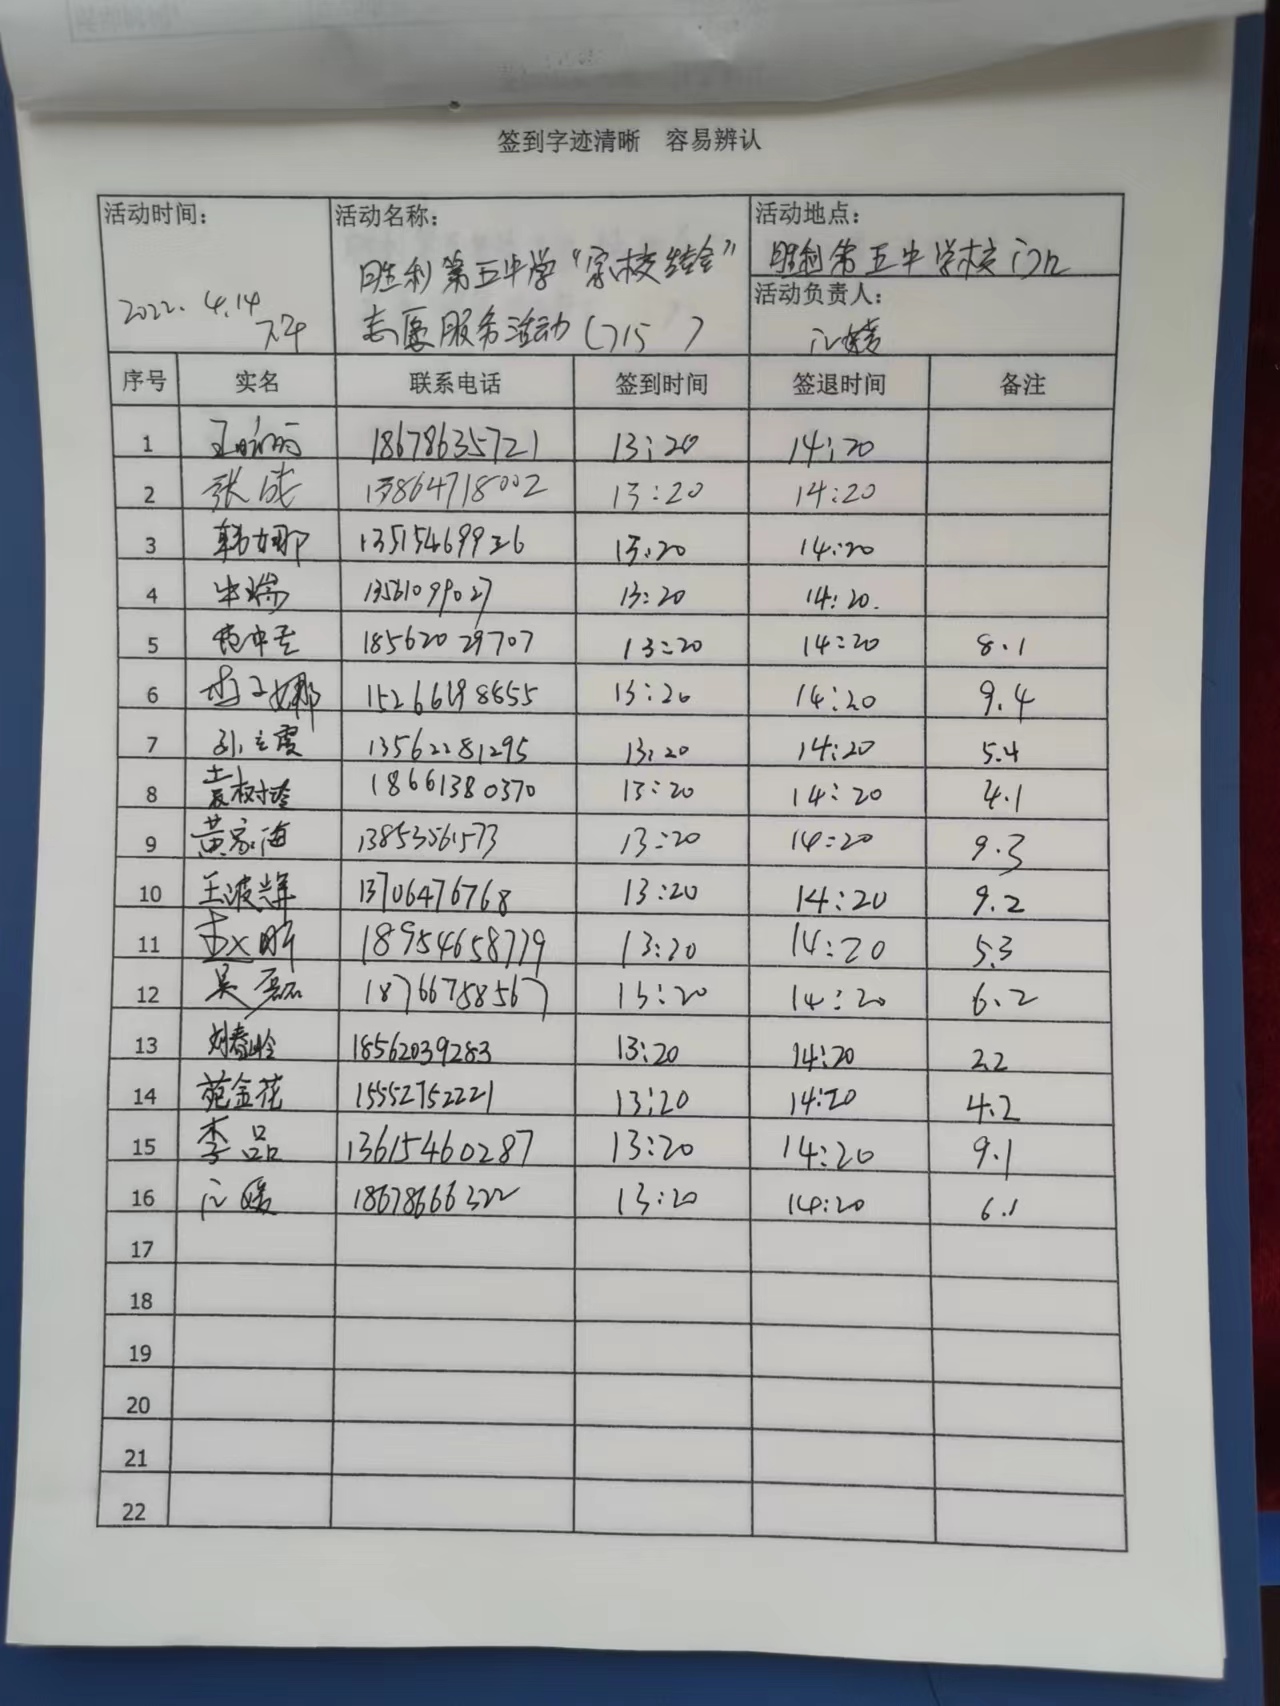 签到字迹清晰 容易辨认
活动时间:
2022. 4.14
下午
活动名称:
胜利第五中学“家校结合”
志愿服务活动(715 )
活动地点:
胜利第五中学校门口
活动负责人:
序号 实名 联系电话 签到时间 签退时间 备注
1 18678635721 13:20 14:20
2 张成 13864718002 13:20 14:20
3 韩娜 13515469926 13:20 14:20
4 牛瑞 13561099027 13:20 14:20.
5 18562029707 13:20 14:20 8.1
6 13:20 14:20 9.4
7 13562281295 13:20 14:20 5.4
8 袁树玲 18661380370 13:20 14:20 4.1
9 黄家海 13853561573 13:20 14:20 9.3
10 王波 13706476768 13:20 14:20 9.2
11 18954658779 13:20 14:20 5.3
12 吴磊 18766758567 13:20 14:20 6.2
13 刘春岭 18562039283 13:20 14:20 2.2
14 苑金花 15552752221 13:20 14:20 4.2
15 李品 13615460287 13:20 14:20 9.1
16 18678666322 13:20 14:20 6.1
17
18
19
20
21
22